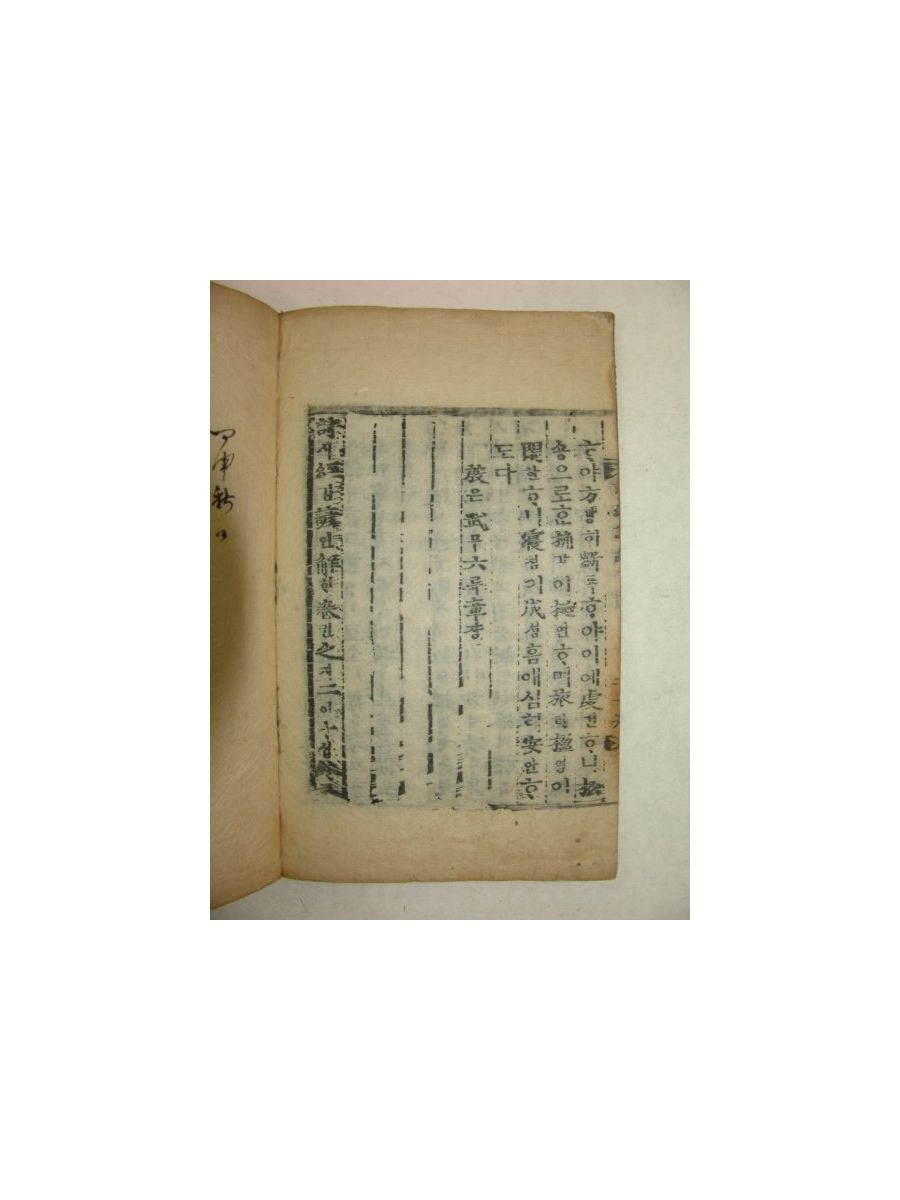 ᄒᆞ야方방히斲착ᄒᆞ야이예虔건ᄒᆞ니松
숑으로ᄒᆞᆫ桷각이梴연ᄒᆞ며旅려楹영이
閑한ᄒᆞ니寢침이成셩홈애심히安안ᄒᆞ
도다
殷은武무六륙章쟝
詩시經경諺언解ᄒᆡ卷권之지二이十십